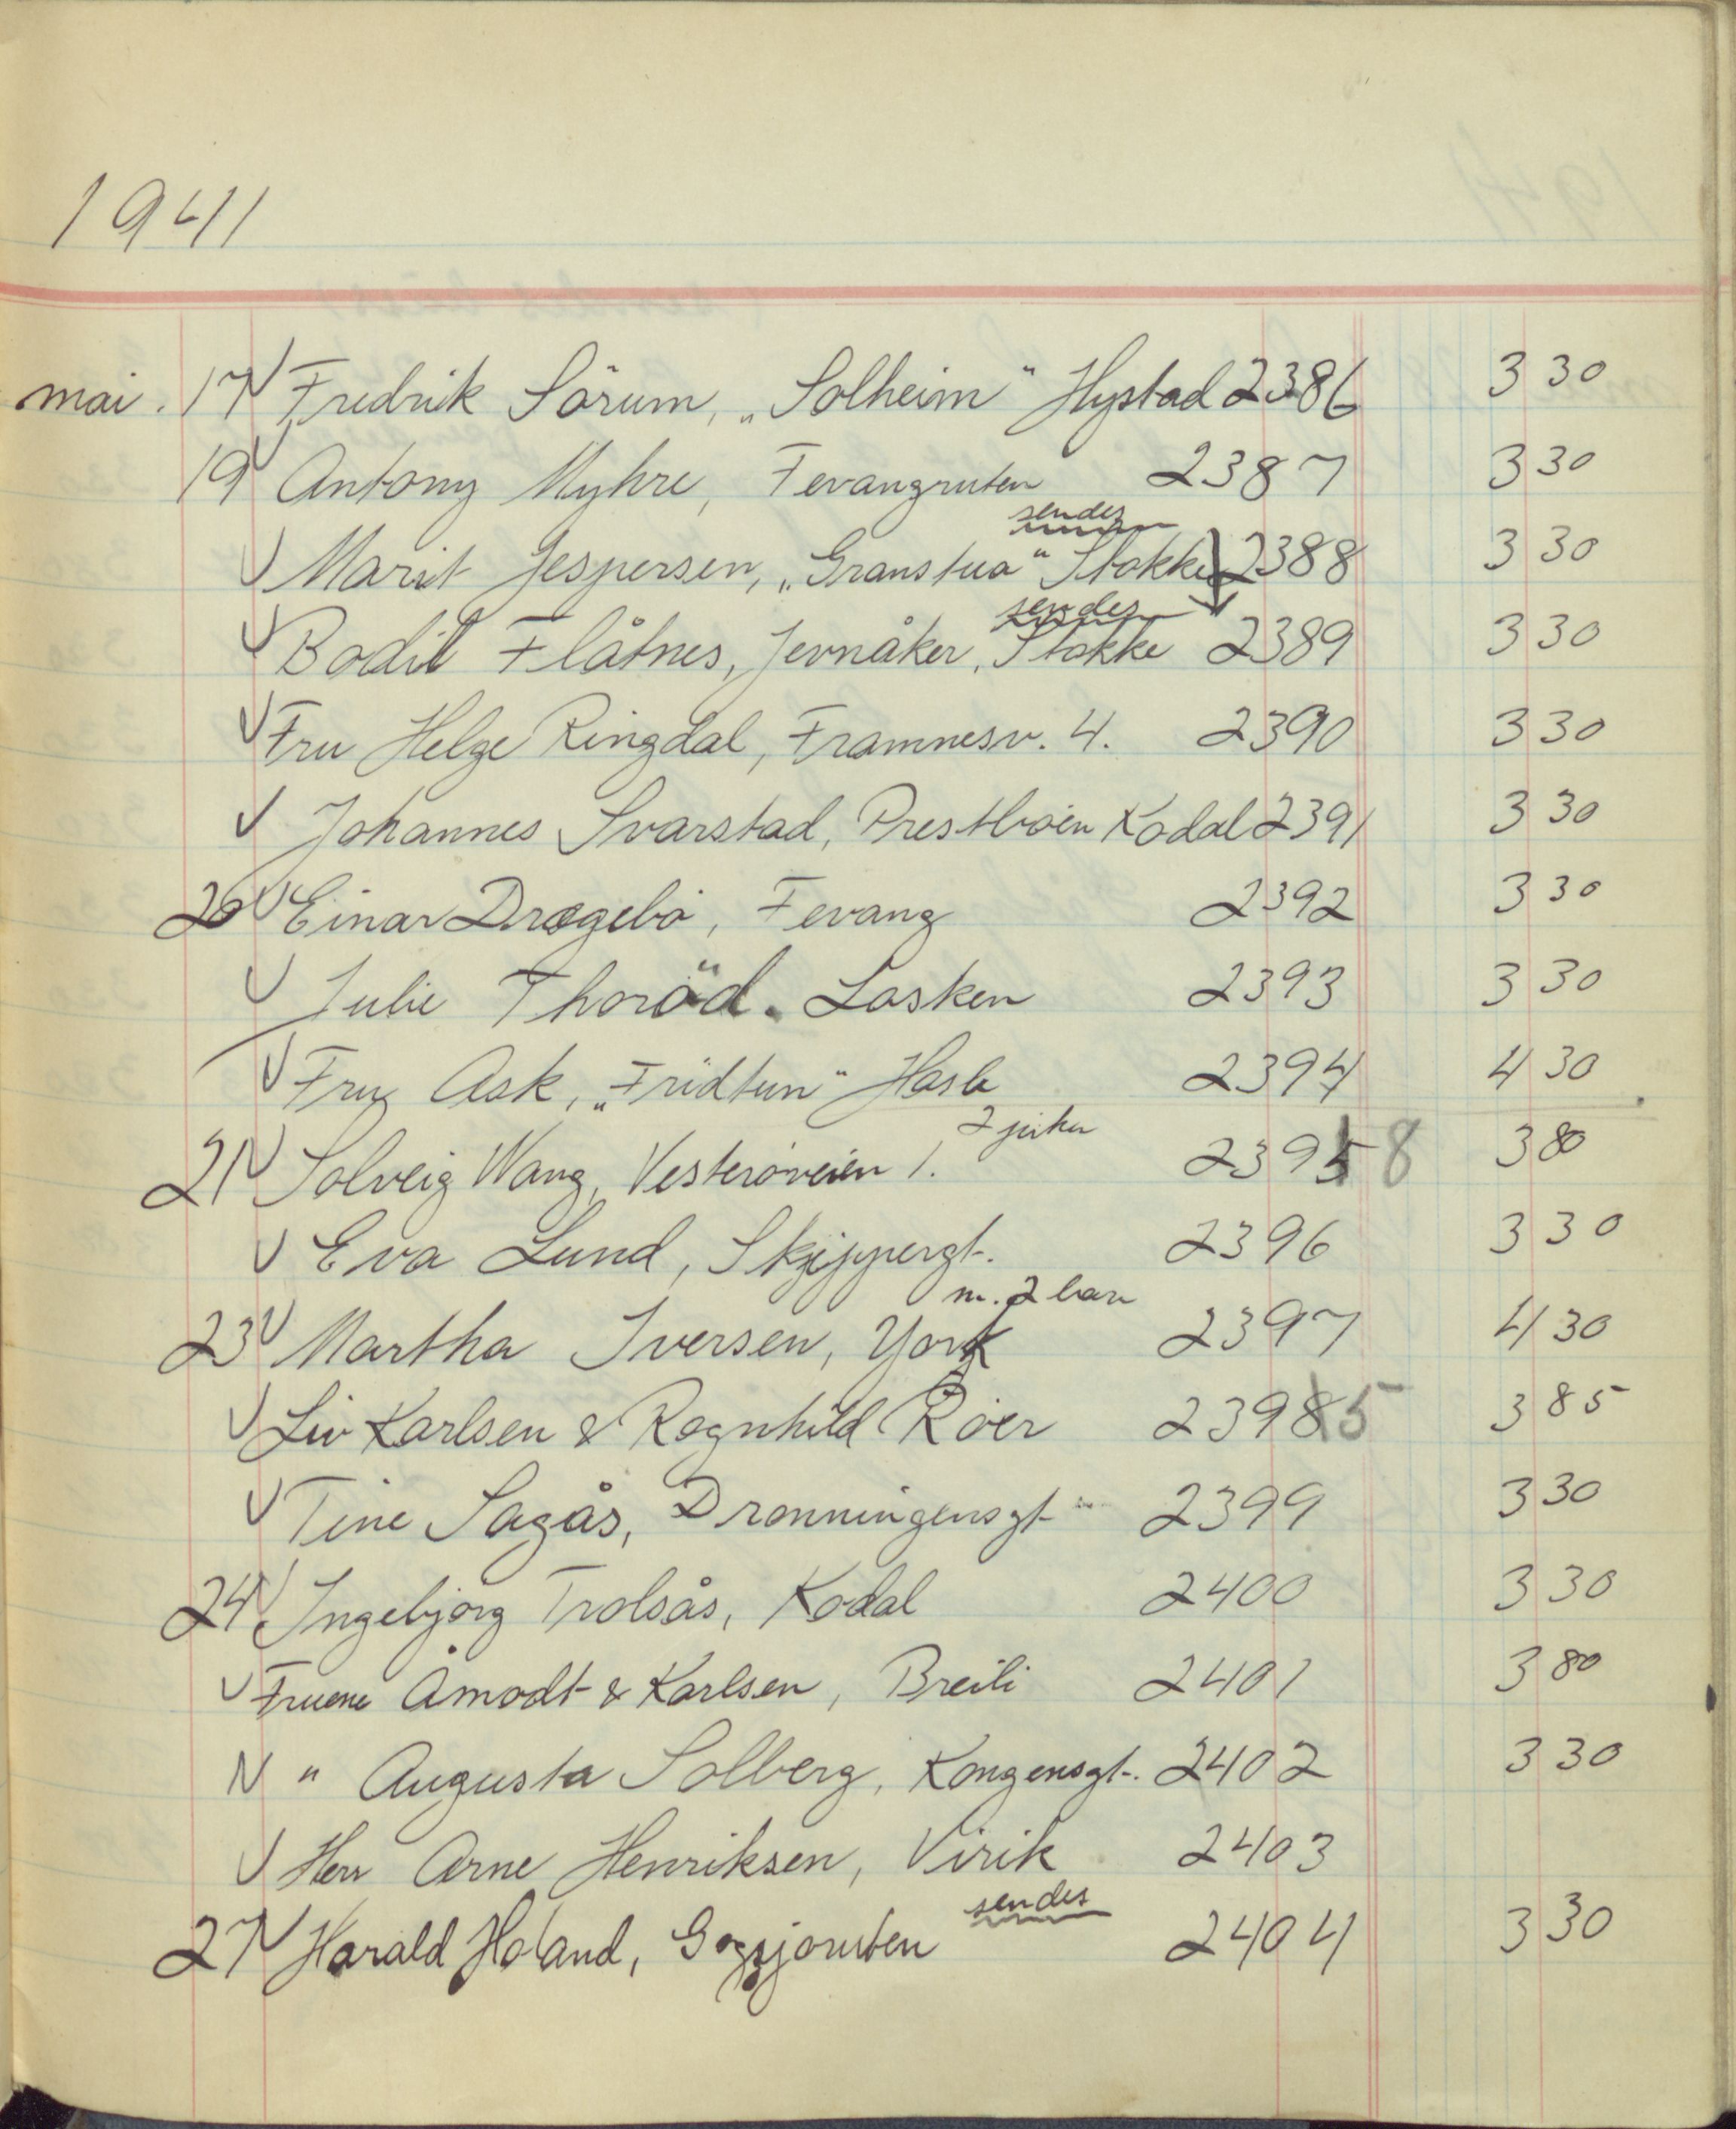 1941
mai. 17 √ Fredrik Sörum, „Solheim" Hystad 2386 3 30
19 √ Antony Myhre, Fevangruten 2387 3 30
sendes
√ Marit Jespersen, „Granstua" Stokke 2388 3 30
sendes
√ Bodil Flåtnes, Jernåker, Stokke 2389 3 30
√ Fru Helge Ringdal, Framnesv. 4. 2390 3 30
√ Johannes Svarstad, Prestbøen Kodal 2391 3 30
20 √ Einar Drægebø, Fevang 2392 3 30
√ Julie Thoröd. Lasken 2393 3 30
√ Fru Ask, „Fridtun" Hasle 2394 4 30
2 piker
21 √ Solveig Wang, Vesterøveien 1. 2398 3 80
√ Eva Lund, Skippergt. 2396 3 30
m. 2 barn
23 √ Martha Iversen, York 2397 4 30
√ Liv Karlsen & Ragnhild Röer 2395 3 85
√ Tine Sagås, Dronningensgt 2399 3 30
24 √ Ingebjørg Trolsås, Kodal 2400 3 30
√ Fruene Åmodt & Karlsen, Breili 2401 3 80
√ " Augusta Solberg, Kongensgt. 2402 3 30
√ Herr Arne Henriksen, Virik 2403
sendes
27 √ Harald Holand, Gogsjøruten 2404 3 30